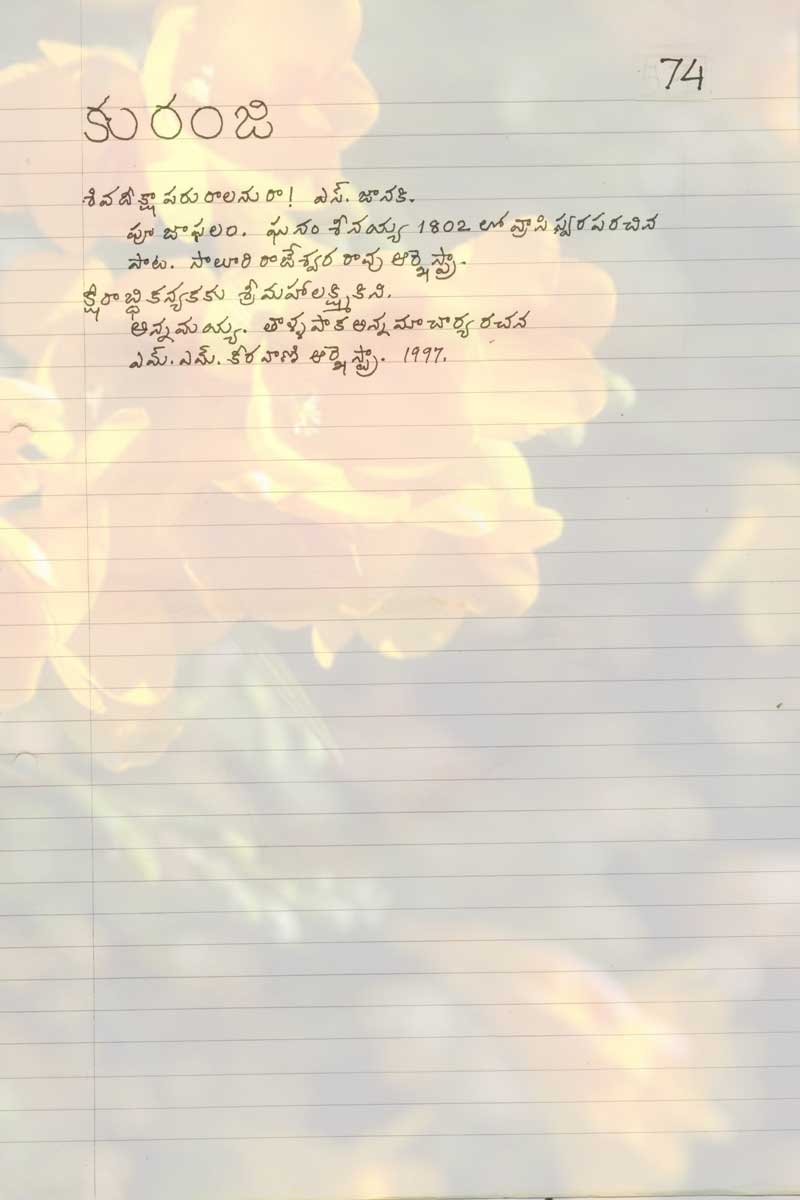 74
కురంజి
శివదీక్షా పరురాలనురా! ఎస్. జానకి.
పూజాఫలం. ఘనం శీనయ్య 1802 లో వ్రాసి స్వరపరచిన
పాట. సాలూరి రాజేశ్వర రావు ఆర్కెస్ట్రా.
క్షీరాబ్ధి కన్యకకు శ్రీమహాలక్ష్మికిని.
అన్నమయ్య. తాళ్ళపాక అన్నమాచార్య రచన
ఎమ్. ఎమ్. కీరవాణి ఆర్కెస్ట్రా. 1997.